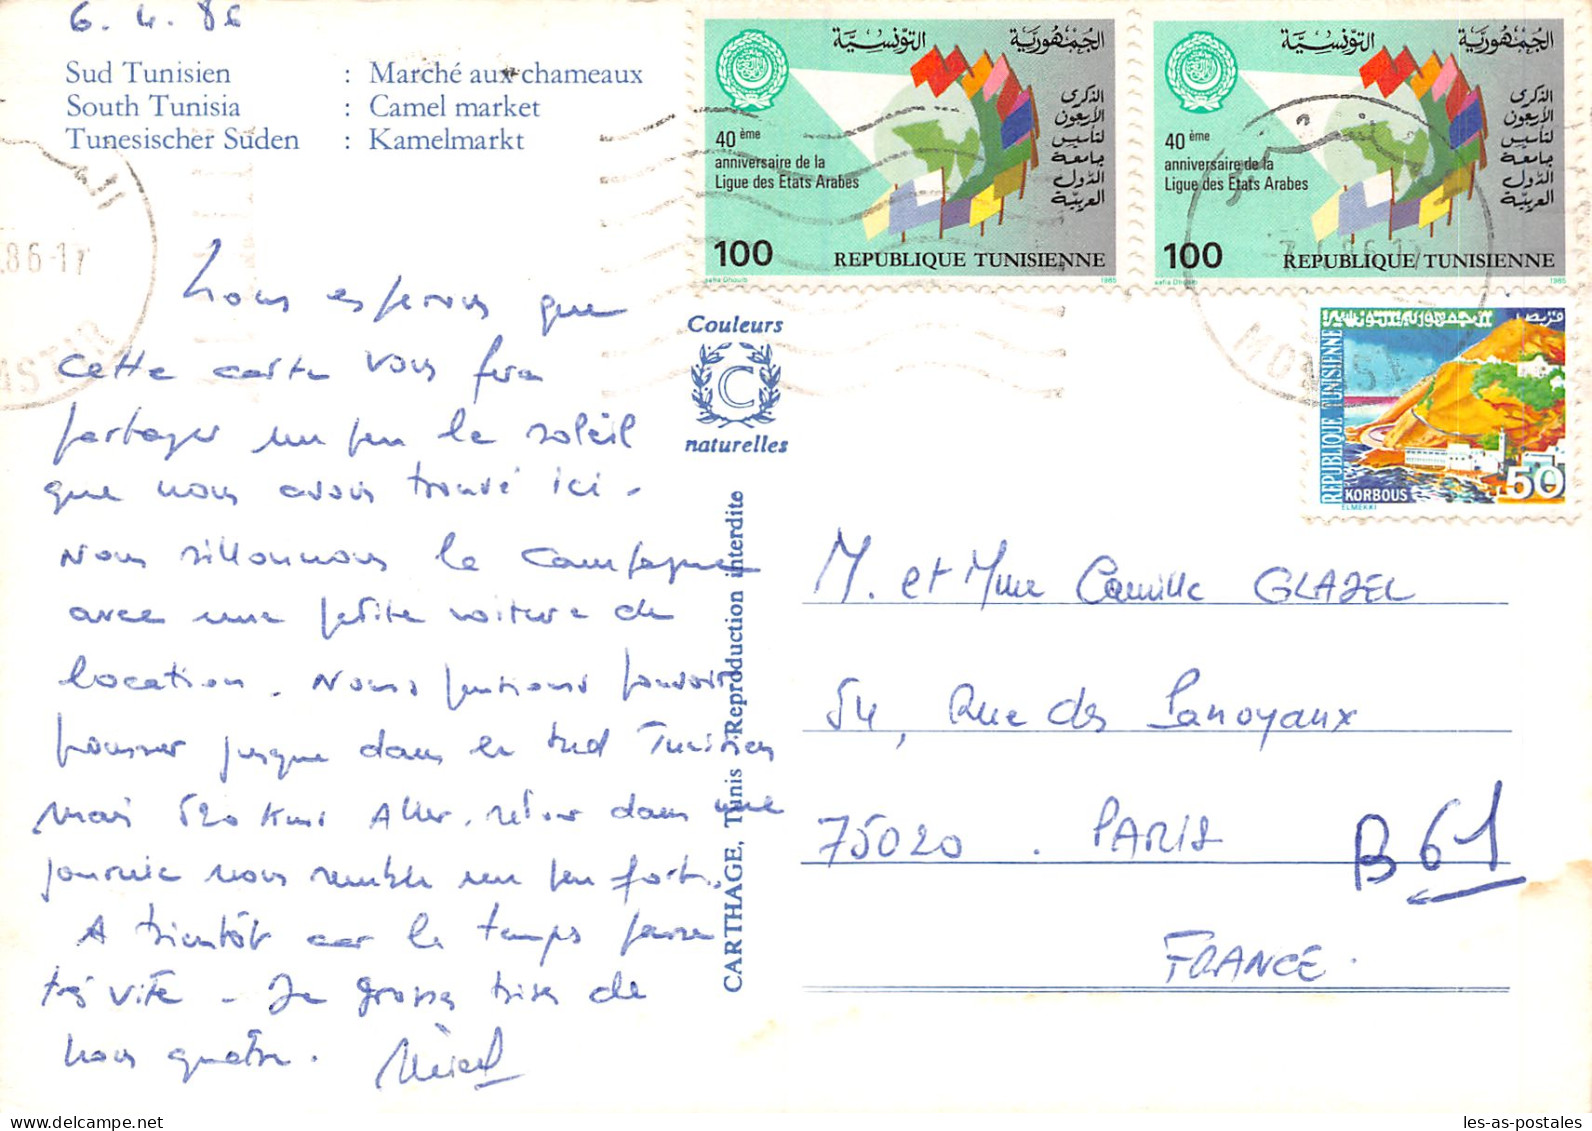 6. 4. 86
Sud Tunisien : Marché aux chameaux
South Tunisia : Camel market
Tunesischer Süden : Kamelmarkt
الجمهورية التونسية
الذكرى
الأربعون
لتأسيس
جامعة
الدول
العربية
40ème
anniversaire de la
Ligue des Etats Arabes
100 REPUBLIQUE TUNISIENNE
safia Dhouib 1985
الجمهورية التونسية
الذكرى
الأربعون
لتأسيس
جامعة
الدول
العربية
40ème
anniversaire de la
Ligue des Etats Arabes
100 REPUBLIQUE TUNISIENNE
safia Dhouib 1985
الجمهورية التونسية قربص
REPUBLIQUE TUNISIENNE
KORBOUS 50
ELMEKKI
.86-17
MONAST
Couleurs
C
naturelles
Nous espérons que
cette carte vous fera
partager un peu le soleil
que nous avons trouvé ici -
Nous sillonnons la campagne
avec une petite voiture de
location. Nous pensions pouvoir
pousser jusque dans le Sud Tunisien
mais 520 Kms Aller. retour dans une
journée nous semble un peu fort.
A bientôt car le temps passe
très vite - Je grosses bises de
nous quatre.
CARTHAGE, Tunis - Reproduction interdite
M. et Mme Camille GLAZEL
54, Rue des Panoyaux
75020 . PARIS
B 61
FRANCE.
les-as-postales - delcampe.net